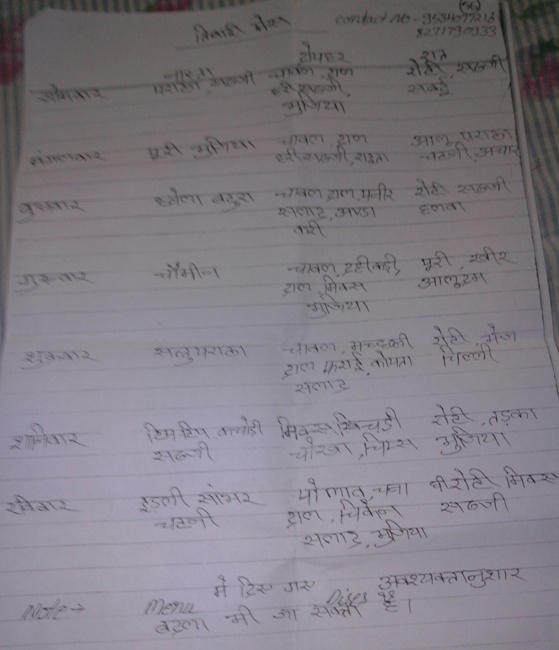 तिवारी मेस
contact no - 9534077218
8271790933
नास्ता दोपहर रात
सोमवार पराठा, सब्जी चावल, दाल रोटी, सब्जी
हरी सब्जी, सेवई
भुजिया
मंगलवार पूरी भुजिया चावल, दाल आलू पराठा
हरी सब्जी, रायता चटनी, अचार
बुधवार छोला बटुरा चावल, दाल, पनीर रोटी सब्जी
सलाद, अण्डा हलवा
करी
गुरुवार चौमीन चावल, दही कढ़ी, पूरी, खीर
दाल, मिक्स आलूदम
भुजिया
शुक्रवार सतुपराठा चावल, मच्छली रोटी, भेज
दाल फ्राई, कोफ्ता चिल्ली
सलाद
शनिवार कचोडी मिक्स खिचडी रोटी, तड़का
सब्जी चोखा, चिप्स भुजिया
रविवार इडली सांभर पोलाव, चना रोटी मिक्स
चटनी दाल, चिकेन सब्जी
सलाद, भुजिया
Note → Menu में दिए गए Dises अवश्यक्तानुशार
बदला भी जा सकता है।